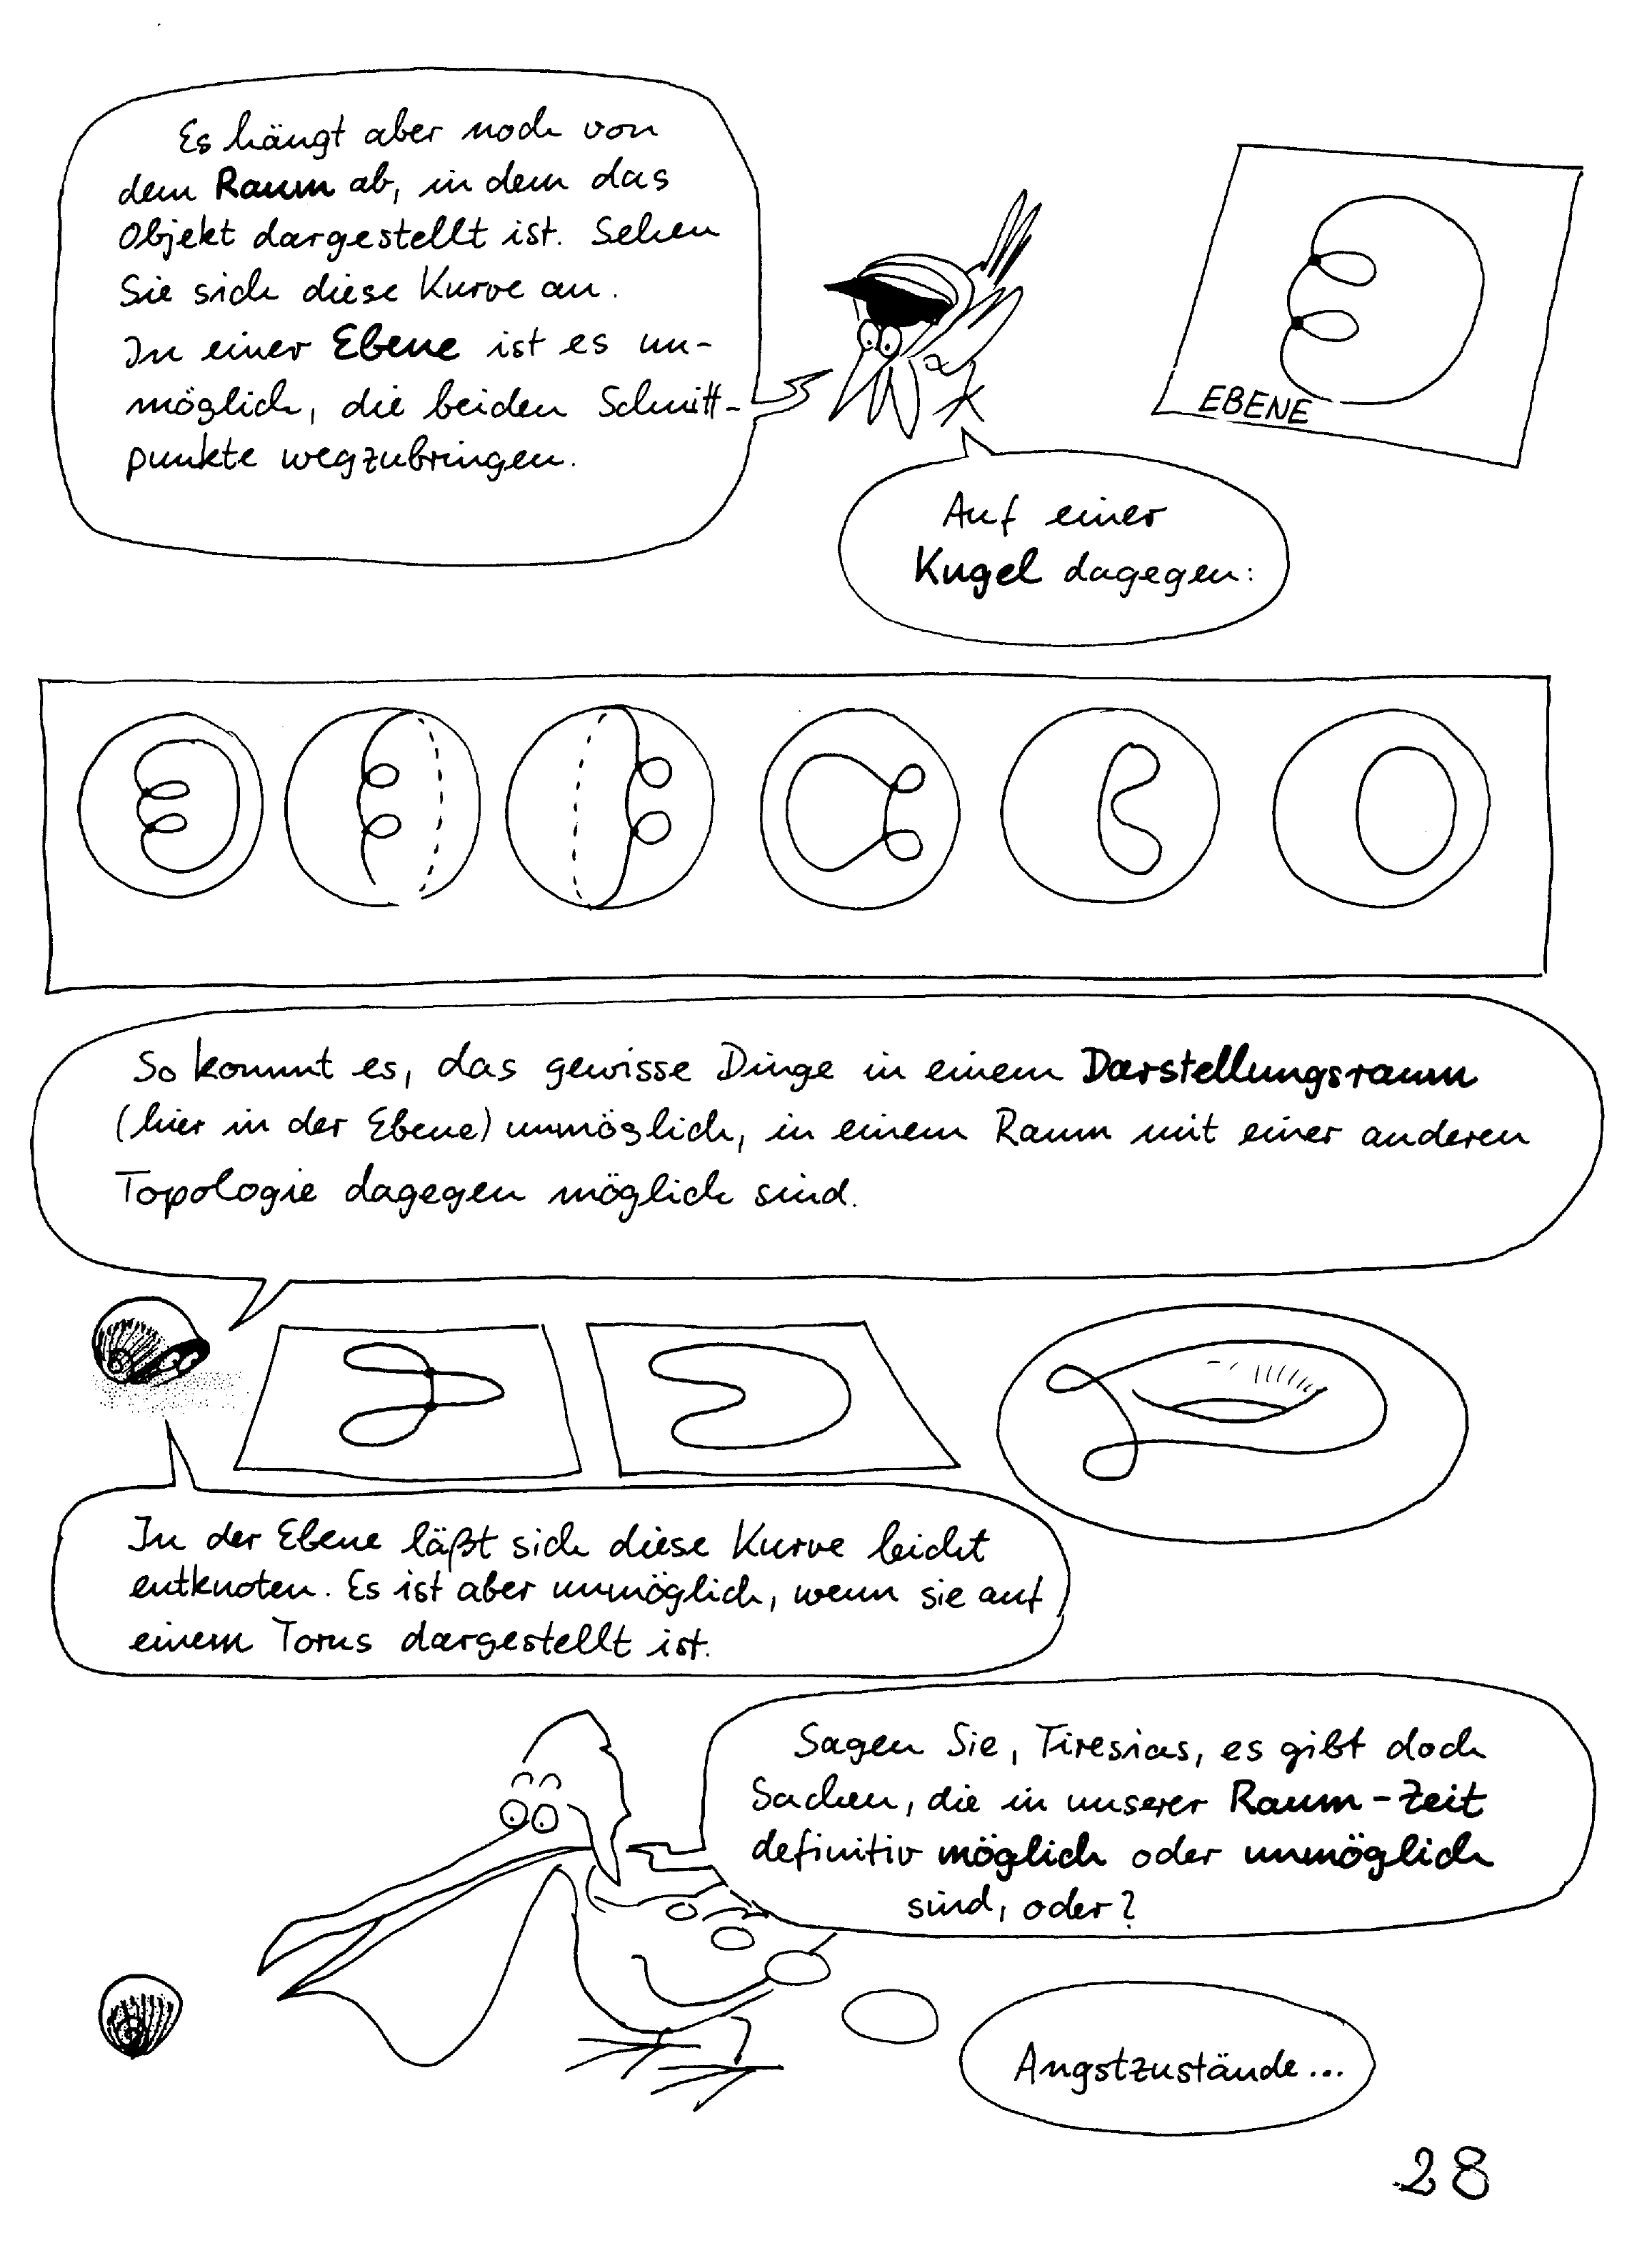 Es hängt aber noch von
dem Raum ab, in dem das
Objekt dargestellt ist. Sehen
Sie sich diese Kurve an.
In einer Ebene ist es un-
möglich, die beiden Schnitt-
punkte wegzubringen.
EBENE
Auf einer
Kugel dagegen:
So kommt es, das gewisse Dinge in einem Darstellungsraum
(hier in der Ebene) unmöglich, in einem Raum mit einer anderen
Topologie dagegen möglich sind.
In der Ebene läßt sich diese Kurve leicht
entknoten. Es ist aber unmöglich, wenn sie auf
einem Torus dargestellt ist.
Sagen Sie, Tiresias, es gibt doch
Sachen, die in unserer Raum-Zeit
definitiv möglich oder unmöglich
sind, oder?
Angstzustände...
28